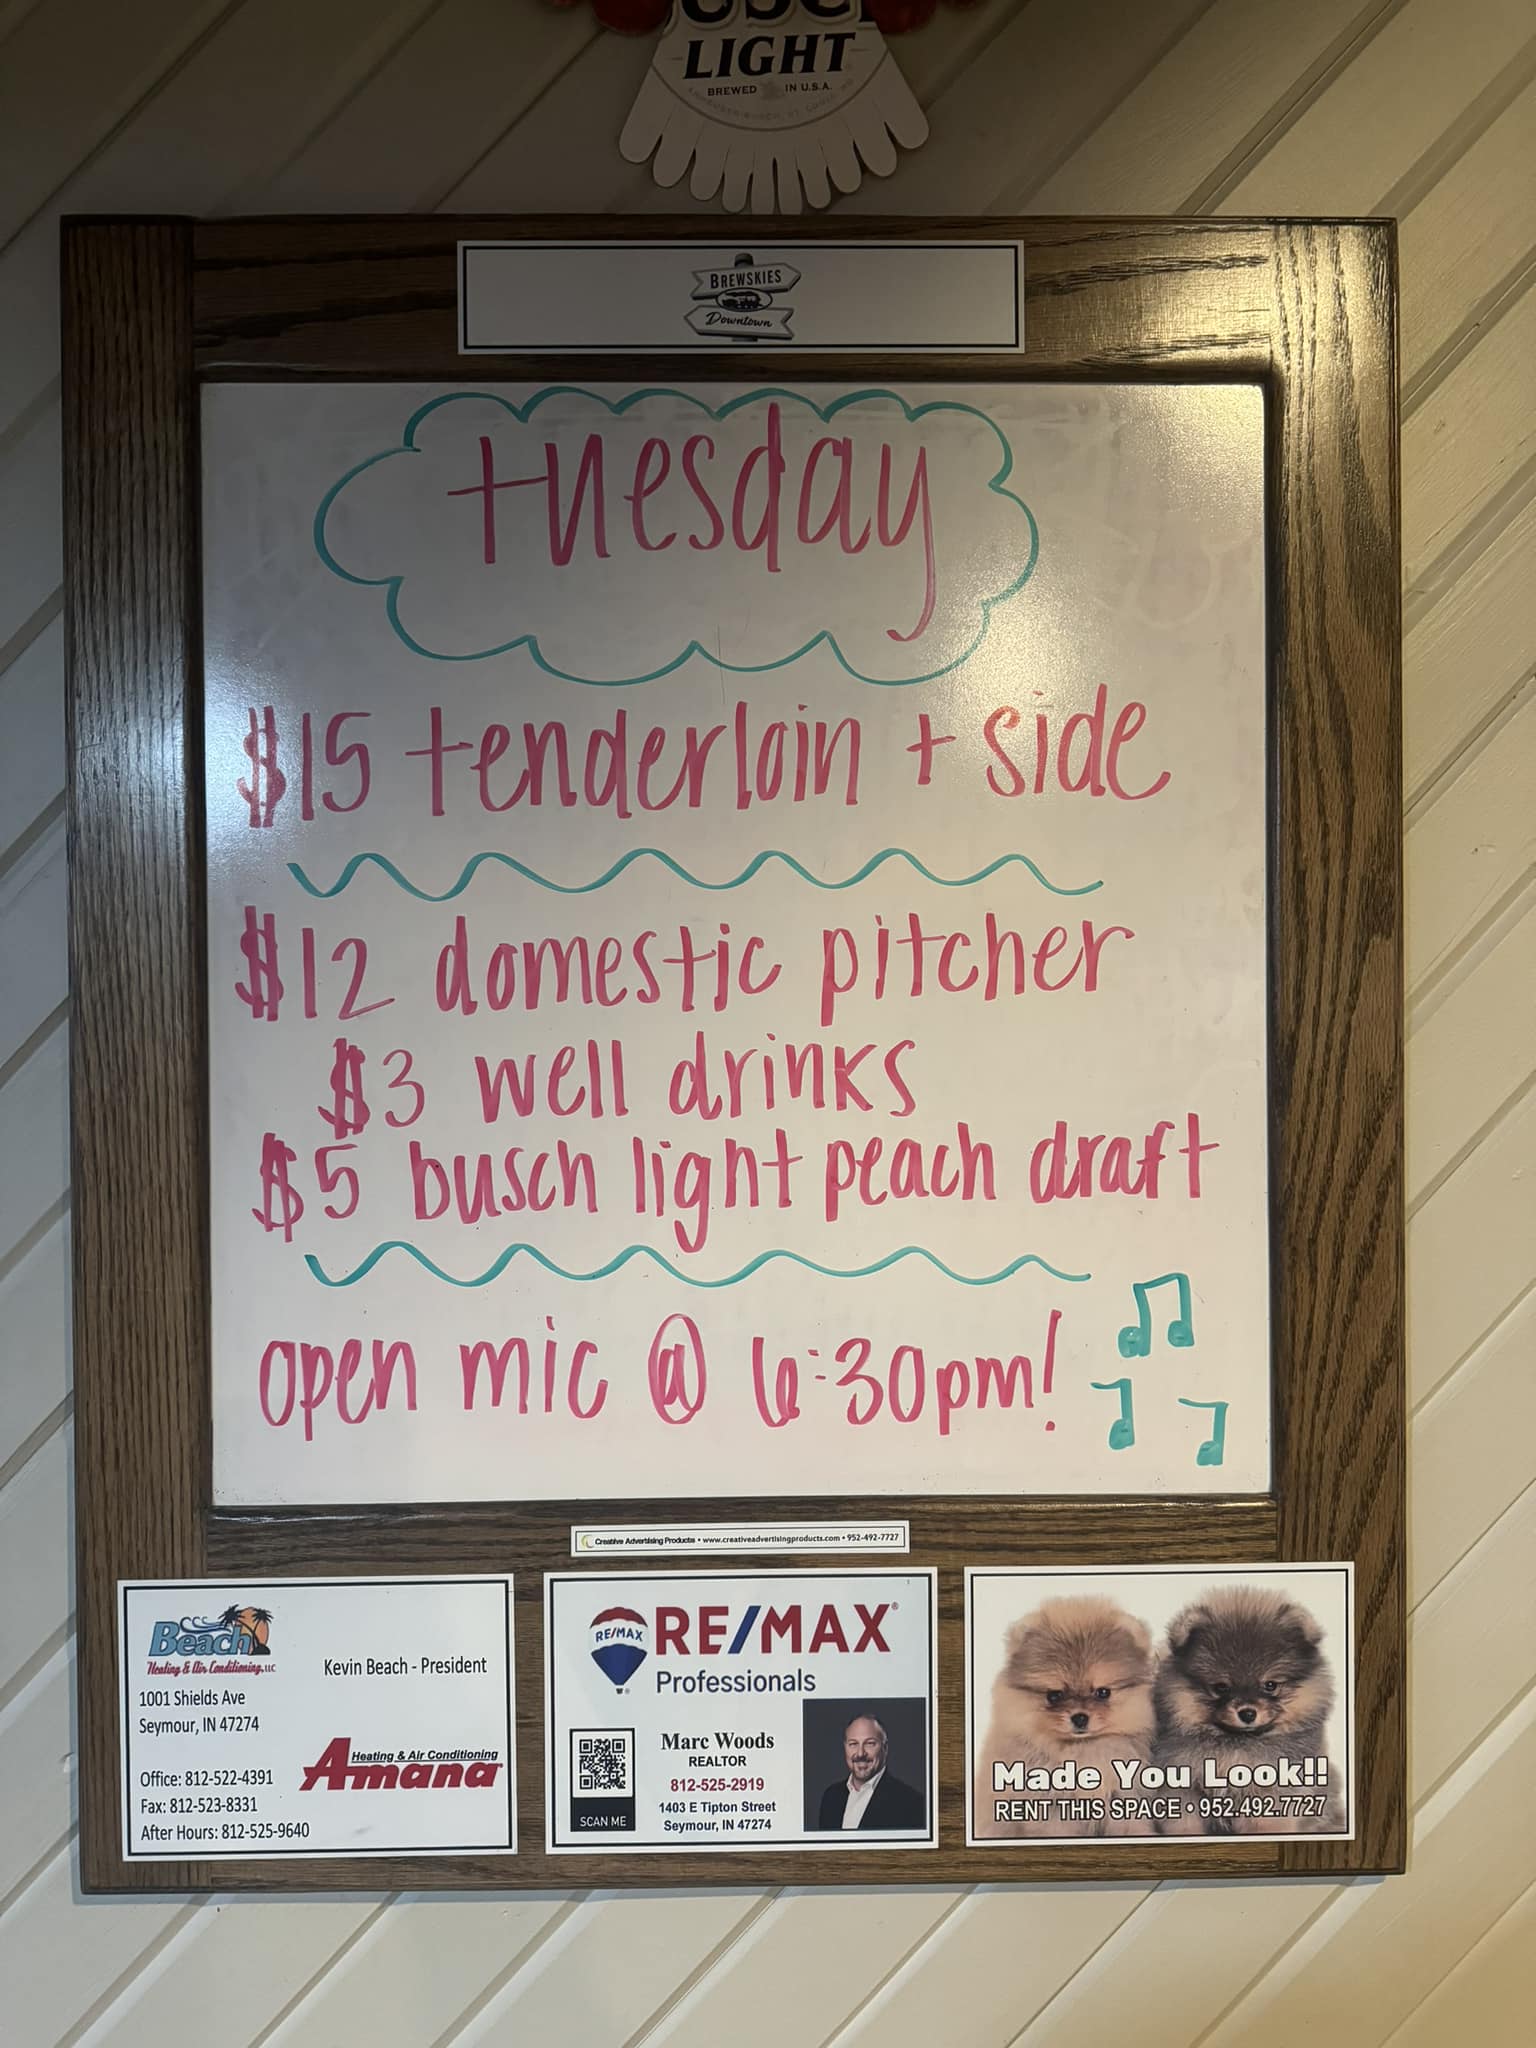 LIGHT
BREWED IN U.S.A.
BREWSKIES
Downtown
tuesday
$15 tenderloin + side
$12 domestic pitcher
$3 well drinks
$5 busch light peach draft
open mic @ 6:30pm!
Creative Advertising Products • www.creativeadvertisingproducts.com • 952-492-7727
Beach
Heating & Air Conditioning, LLC
Kevin Beach - President
1001 Shields Ave
Seymour, IN 47274
Heating & Air Conditioning
Amana
Office: 812-522-4391
Fax: 812-523-8331
After Hours: 812-525-9640
RE/MAX
RE/MAX®
Professionals
Marc Woods
REALTOR
812-525-2919
1403 E Tipton Street
Seymour, IN 47274
SCAN ME
Made You Look!!
RENT THIS SPACE • 952.492.7727